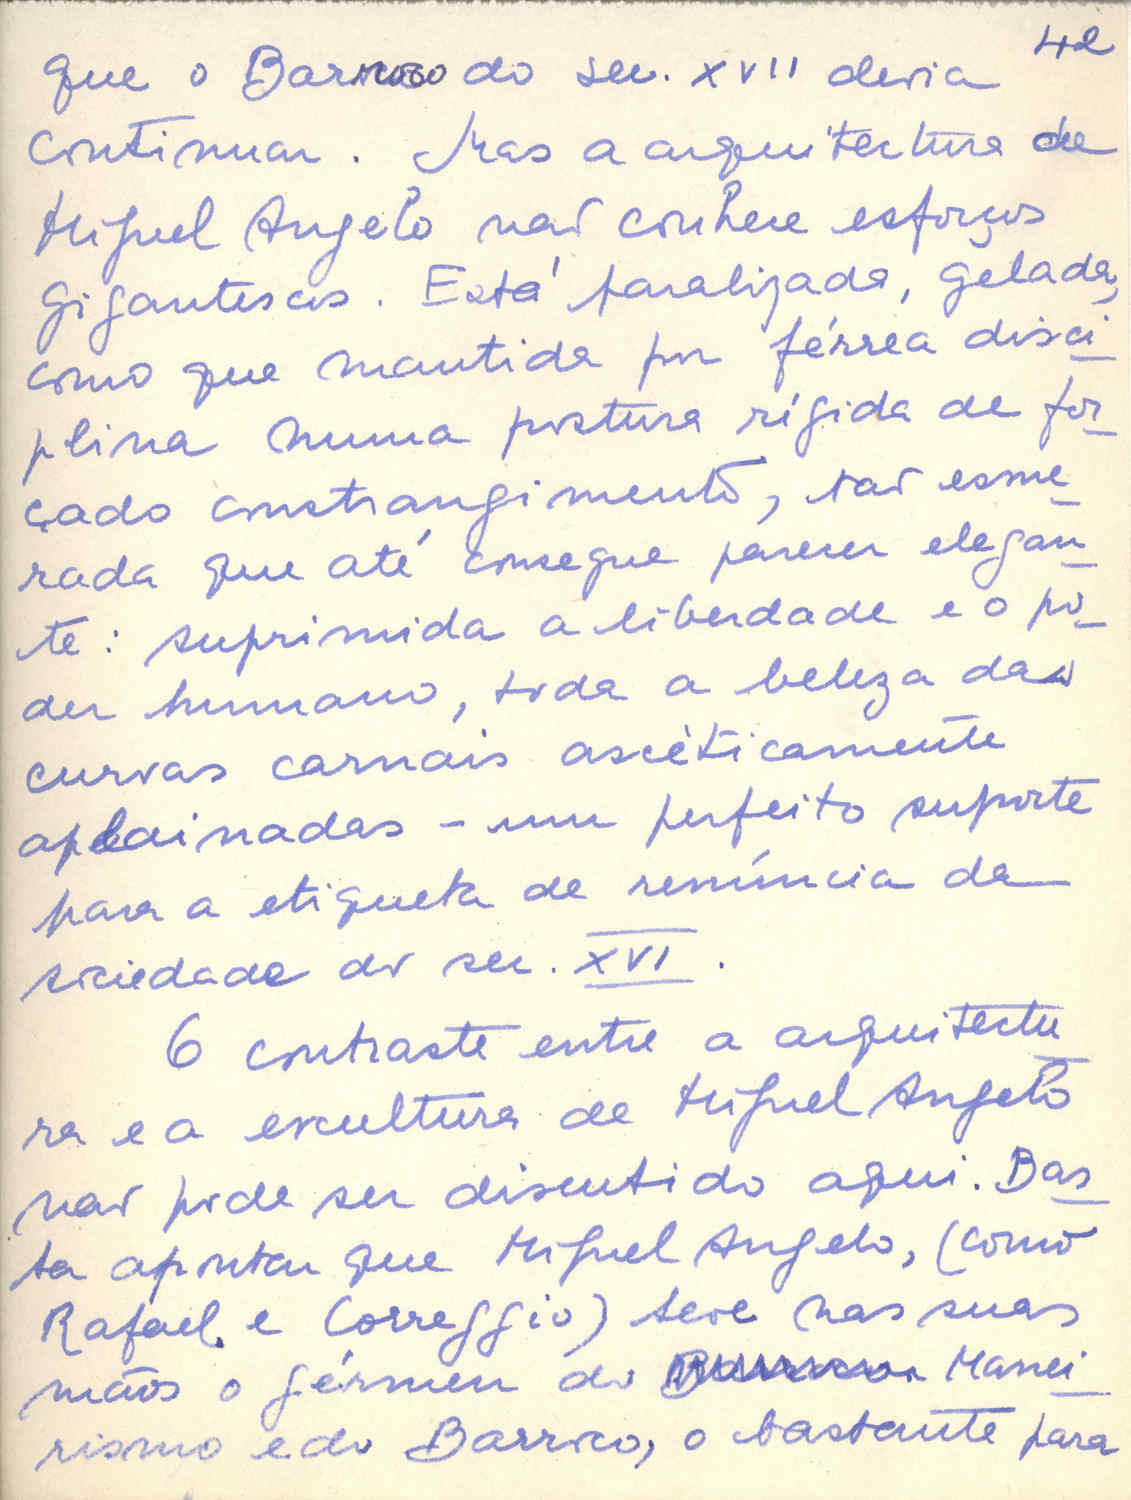 42
que o Barroco do sec. XVII devia
continuar. Mas a arquitectura de
Miguel Angelo não conhece esforços
gigantescos. Está paralizada, gelada,
como que mantida por férrea disci
plina numa postura rígida de for
çado constrangimento, tão esme
rada que até consegue parecer elegan
te: suprimida a liberdade e o po-
der humano, toda a beleza das
curvas carnais ascèticamente
aplainadas - um perfeito suporte
para a etiqueta de renúncia da
sociedade do sec. XVI.
O contraste entre a arquitectu
ra e a escultura de Miguel Angelo
não pode ser discutido aqui. Bas
ta apontar que Miguel Angelo, (como
Rafael e Correggio) teve nas suas
mãos o gérmen do Manei
rismo e do Barroco, o bastante para